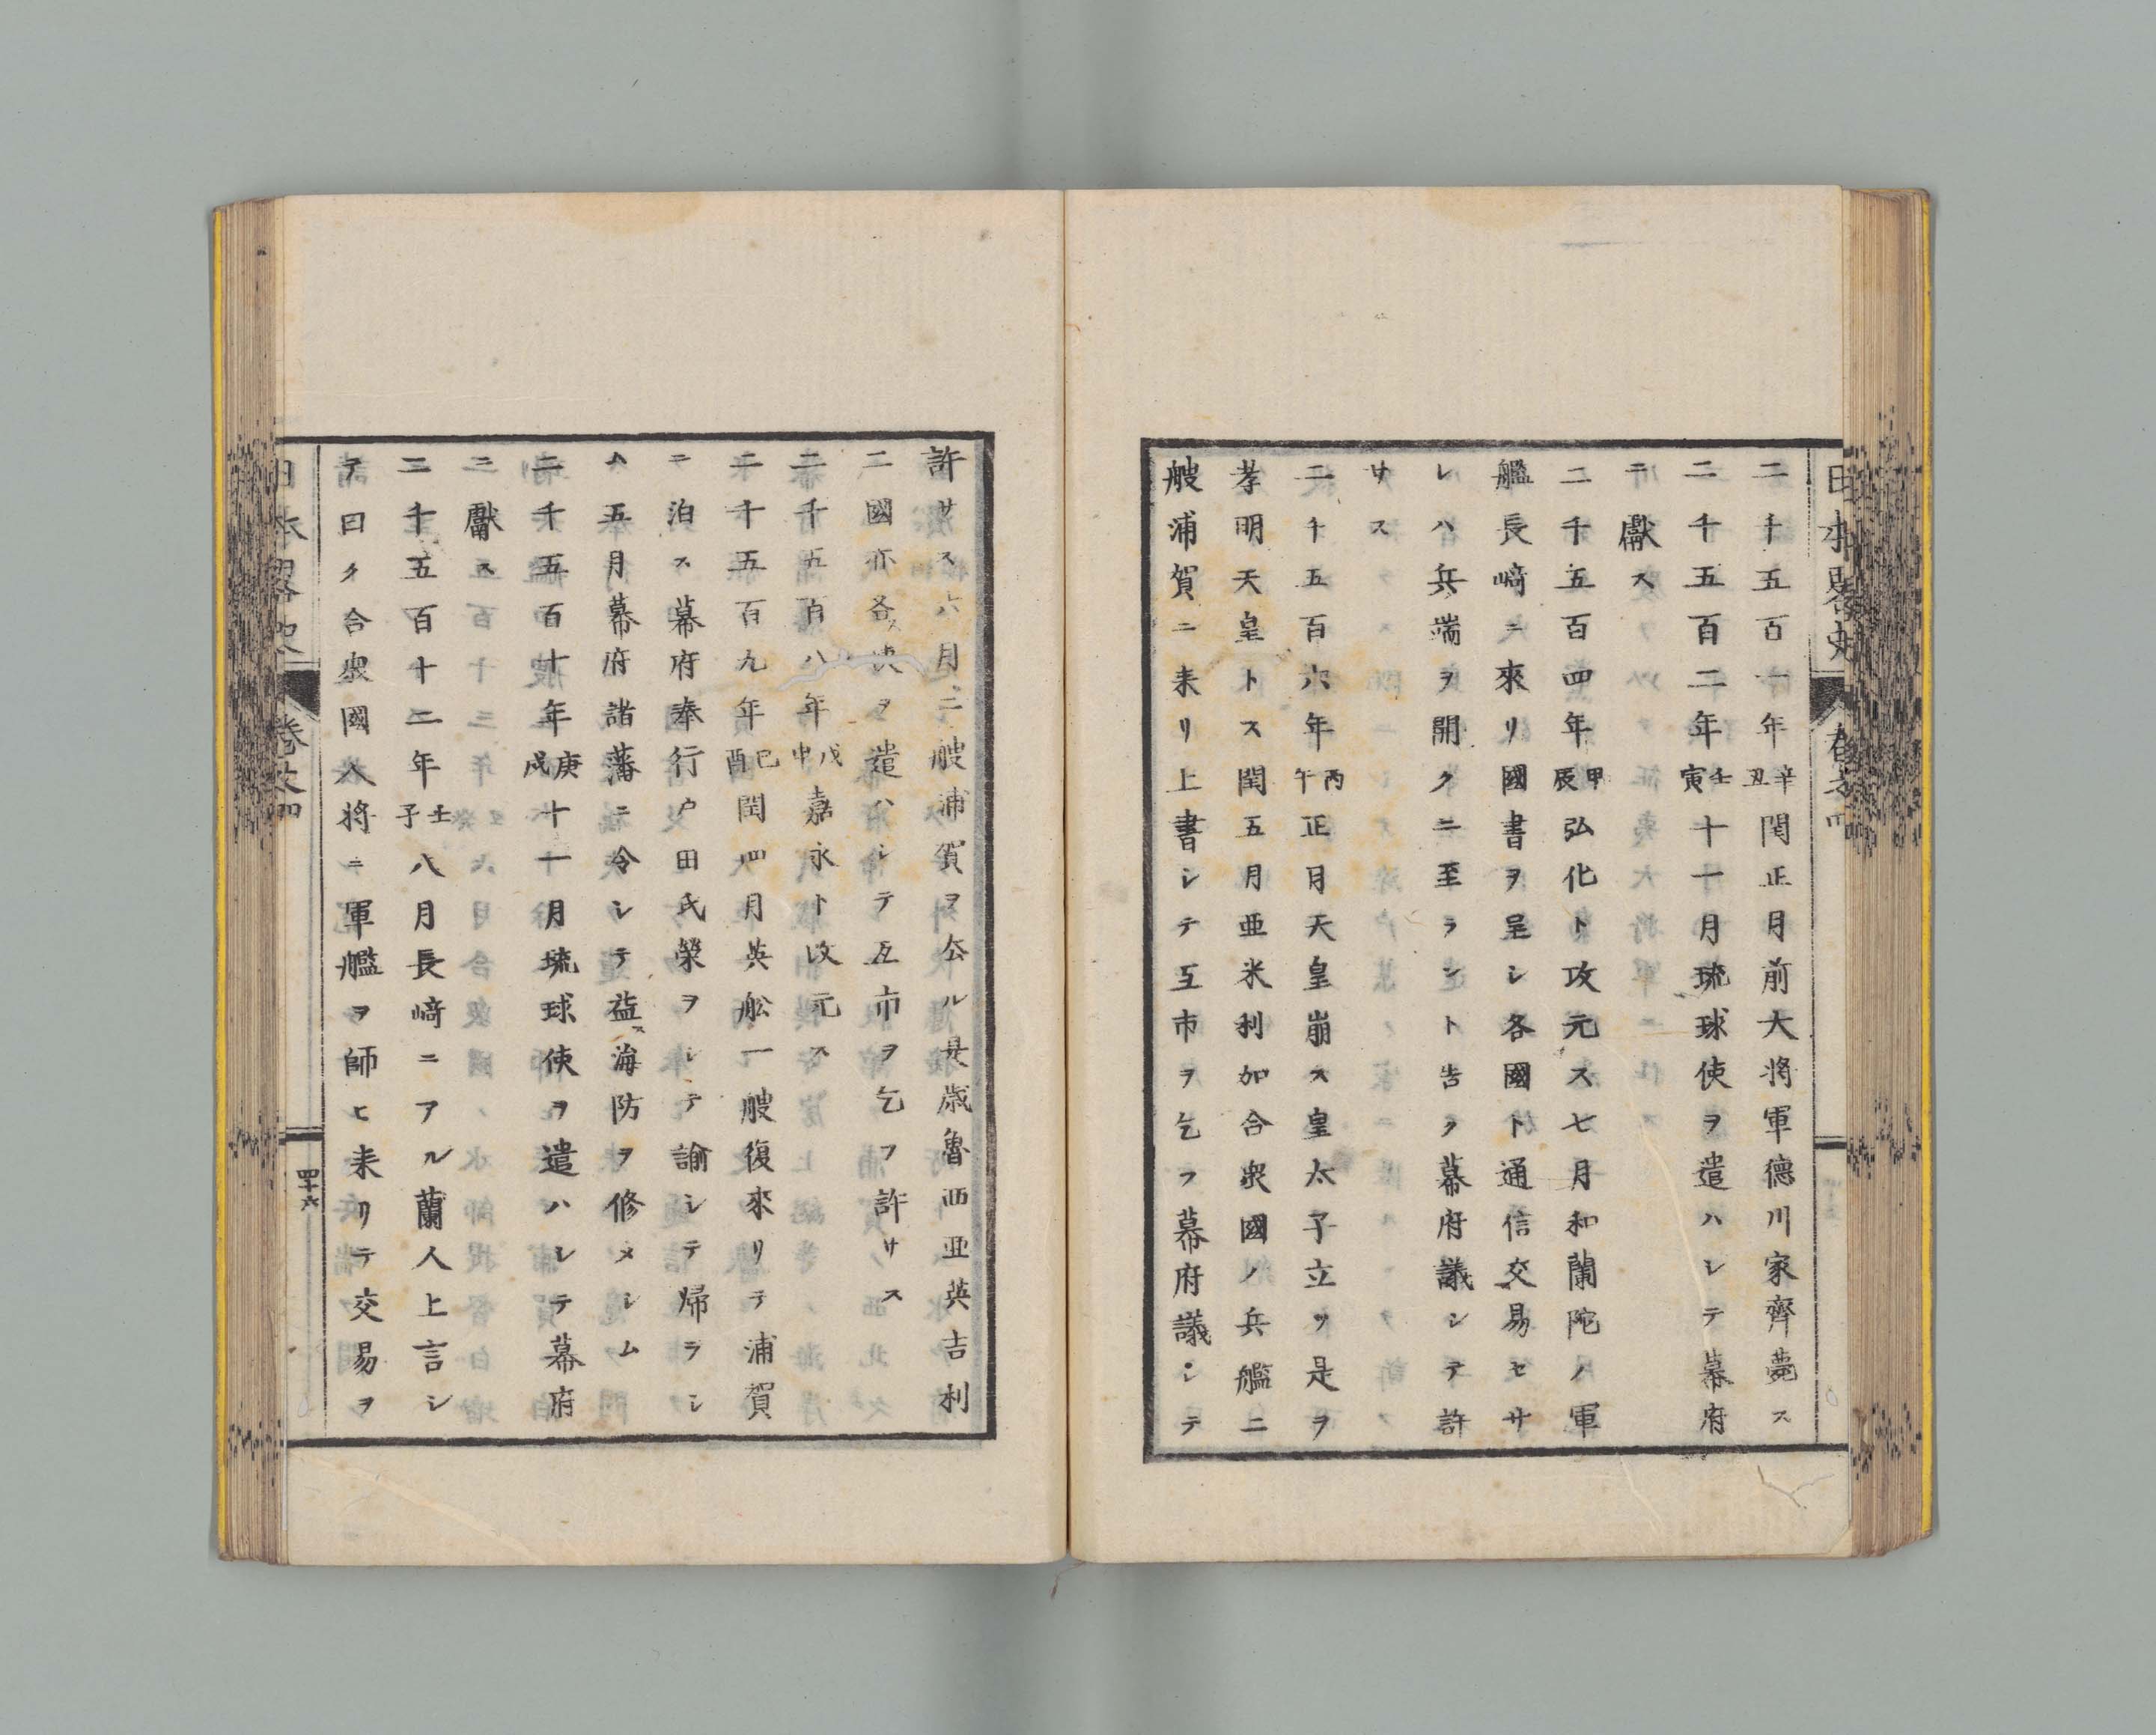 二千五百一年辛丑閏正月前大将軍德川家齊薨ス
二千五百二年壬寅十一月琉球使ヲ遣ハシテ幕府
ニ獻ス
二千五百四年甲辰弘化ト改元ス七月和蘭陀ノ軍
艦長﨑ニ來リ國書ヲ呈シ各國ト通信交易セサ
レハ兵端ヲ開クニ至ラントト告ク幕府議シテ許
サス
二千五百六年丙午正月天皇崩ス皇太子立ツ是ヲ
孝明天皇トス閏五月亜米利加合衆國ノ兵艦二
艘浦賀ニ来リ上書シテ互市ヲ乞フ幕府議シテ
許サス六月二艘浦賀ヲ去ル是歳魯西亜英吉利
二國亦各使ヲ遣ハシテ互市ヲ乞フ許サス
二千五百八年戊申嘉永ト改元ス
二千五百九年己酉閏四月英舩一艘復來リテ浦賀
ニ泊ス幕府奉行戸田氏榮ヲシテ諭シテ歸ラシ
ム五月幕府諸藩ニ令シテ益海防ヲ修メシム
二千五百十年庚戌十一月琉球使ヲ遣ハシテ幕府
ニ獻ス
二千五百十二年壬子八月長﨑ニアル蘭人上言シ
テ曰ク合衆國人将ニ軍艦ヲ師ヒ来リテ交易ヲ
日本畧史
卷之四
四十六